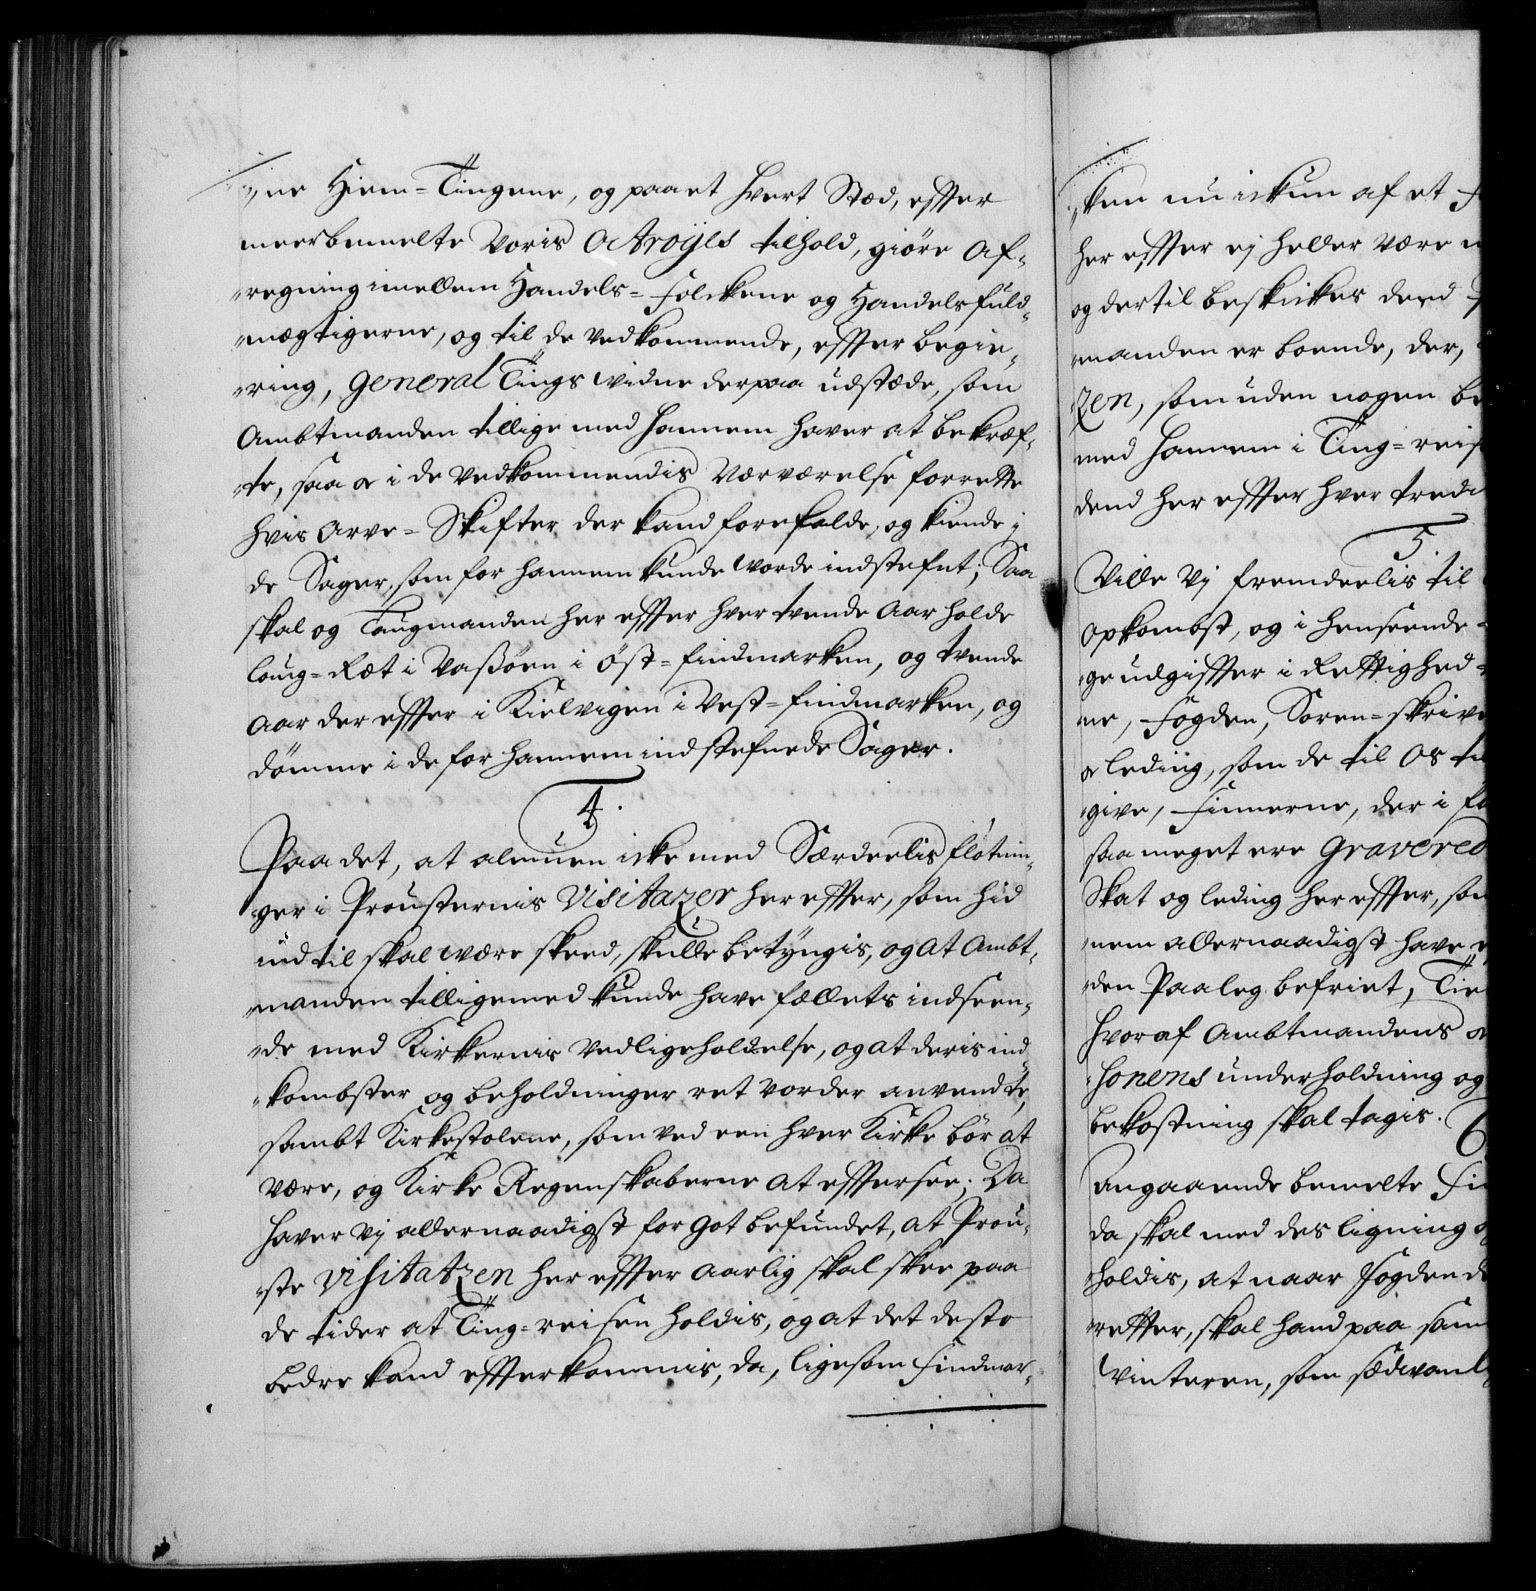 ne Hiem-Tingene, og paa et hvert Stæd, effter
meerbemelte Voris Octroyes tilhold, giöre Af-
regning imellem Handels-Folckene og Handelsfuld-
mægtigerne, og til de vedkommende, effter begie-
ring, General Tings Widne derpaa udstæde, som
Ambtmanden tillige med hannem haver at bekræf-
te, saa og i de vedkommendis Værværelse forrette
hvis Arve-Skifter der kand forefalde, og kiende i
de Sager, som for hannem kunde worde indstefnt; Saa
skal og Laugmanden her effter hver tvende Aar holde
laug-Ræt i Vasöen i Öst-Findmarken, og tvende
Aar der effter i Kielvigen i Vest-Findmarken, og
dömme i de for hannem indstefnede Sager.
4.
Paa det, at almuen icke med Særdeelis fløtnin-
ger i Prousternis Visitazer her effter, som hid
indtil skal være skeed, skulle betyngis, og at Ambt-
manden tilligemed kunde have fællets indseen-
de med Kirkernis Vedligeholdelse, og at deris ind-
kombster og beholdninger ret vorder anvendte,
sambt Kirkestolene, som ved een hver Kirke bör at
være, og Kirke Regenskaberne at efftersee; Da
haver Vi allernaadigst for got befundet, at Prou-
ste Visitatzen her effter Aarlig skal skee paa
de tider at Ting-reisen holdis, og at det desto
bedre kand effterkommis, da, ligesom Findmar-
ken nu ickun af et
her effter ej heller være
og dertil beskikkes deed
manden er boende, der,
zen, som uden nogen
med hannem i Ting-reis
dend her effter hver tredi
5.
Ville Vi fremdeelis til
Opkombst, og i henseende
ge udgiffter i Rettighed
ne, Fogden, Soren-skriv
og leding, som de til Os
give, Finnerne, der i
saa meget ere Gravered
Skat og leding her effter, som
nem allernaadigst have
den Paaleg befriet, Tie
hvoraf Ambtmandens
sonens underholdning og
bekostning skal tagis.
6
Angaaende bemelte
da skal med des ligning
holdis, at naar Fogden
retter, skal hand paa sam
Vinteren, som sædvanl